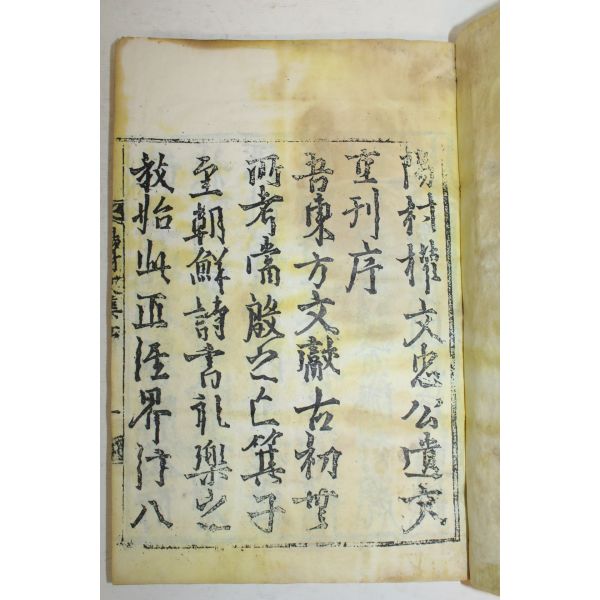 陽村權文忠公遺文
重刊序
吾東方文獻古初無
所考當殷之亡箕子
至朝鮮詩書礼樂之
教始此正經界作八